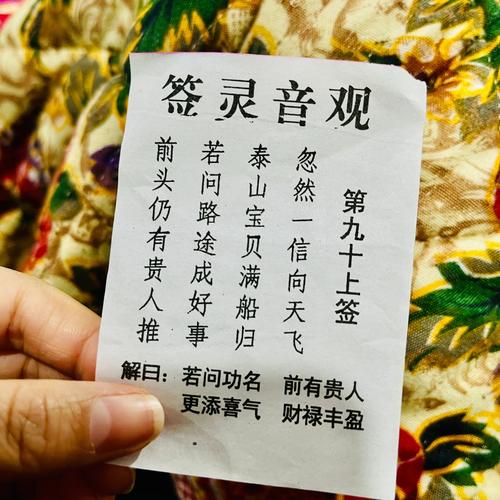 观音灵签
第九十上签
忽然一信向天飞
泰山宝贝满船归
若问路途成好事
前头仍有贵人推
解曰：若问功名 前有贵人
更添喜气 财禄丰盈